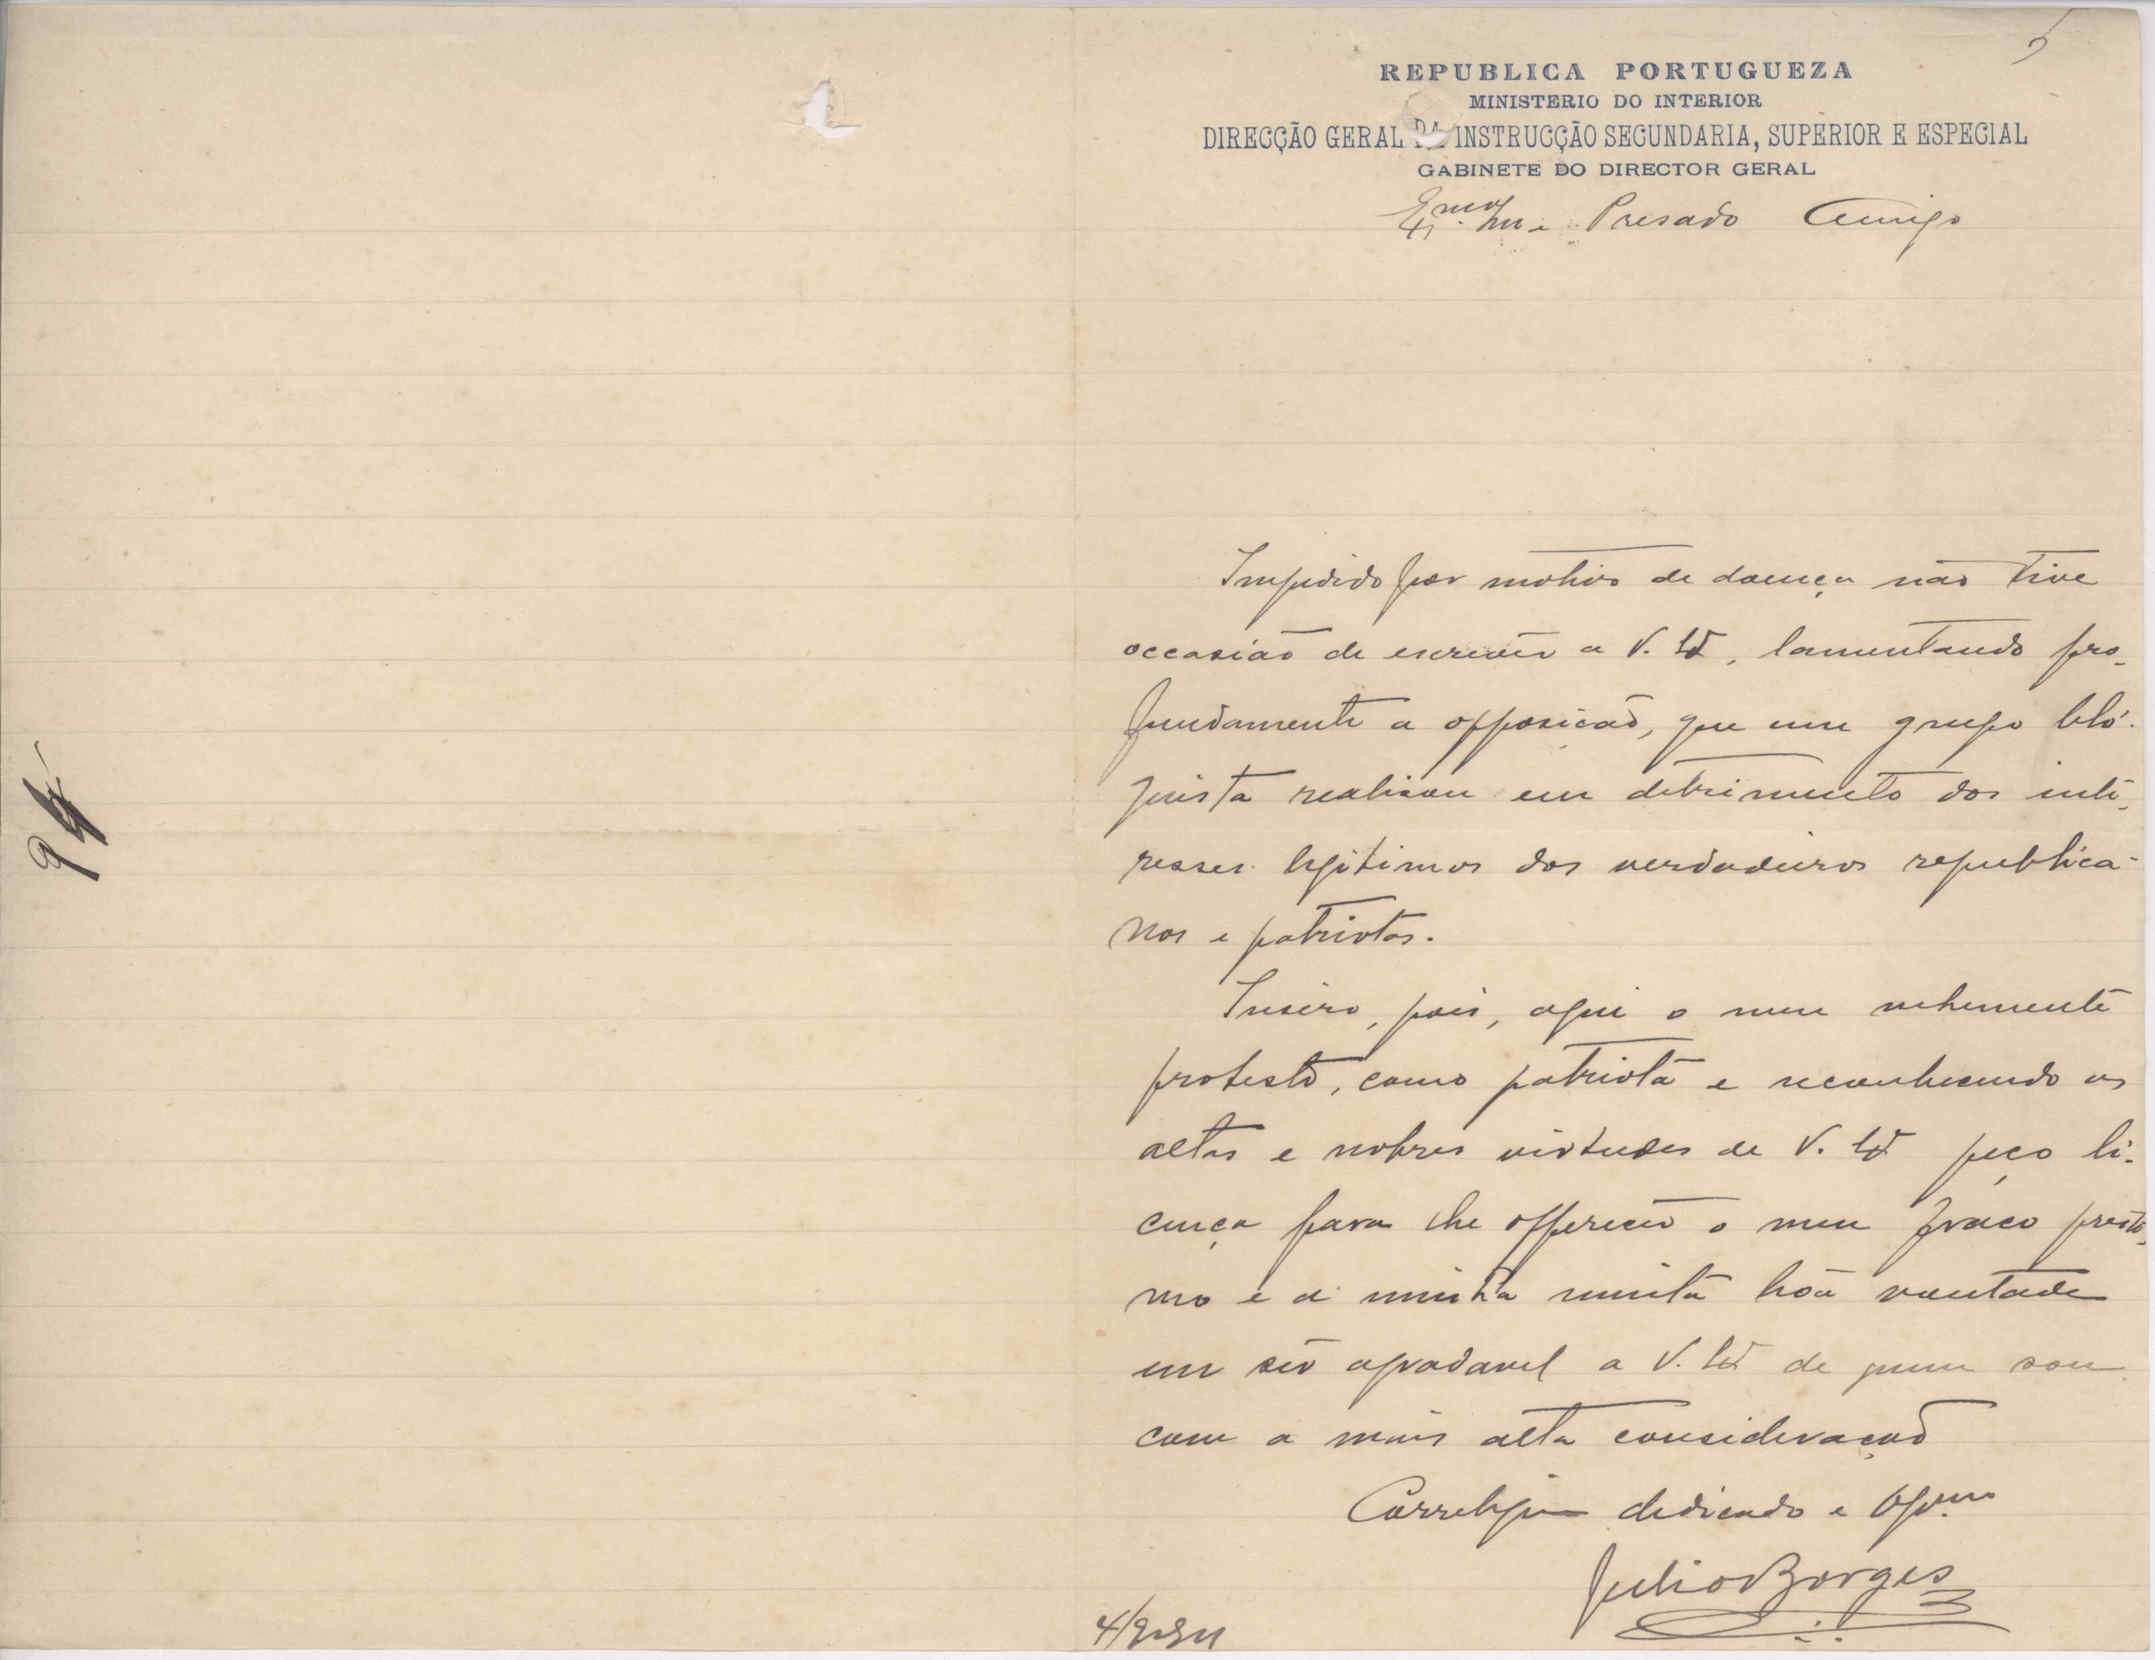 5
REPUBLICA PORTUGUEZA
MINISTERIO DO INTERIOR
DIRECÇÃO GERAL DA INSTRUCÇÃO SECUNDARIA, SUPERIOR E ESPECIAL
GABINETE DO DIRECTOR GERAL
Exmo Snr e Presado Amigo
Impedido por motivo de doença não tive
occasião de escrever a V. Ex, lamentando pro-
fundamente a opposição, que um grupo bló-
quista realisou em detrimento dos inte-
resses legitimos dos verdadeiros republica-
nos e patriotas.
Insiro, pois, aqui o meu vehemente
protesto, como patriota e reconhecendo as
altas e nobres virtudes de V. Ex peço li-
cença para lhe offerecer o meu fraco presti-
mo e a minha muita bôa vontade
em ser agradavel a V. Ex de quem sou
com a mais alta consideração
Correlegio dedicado e
Julio Borges
94